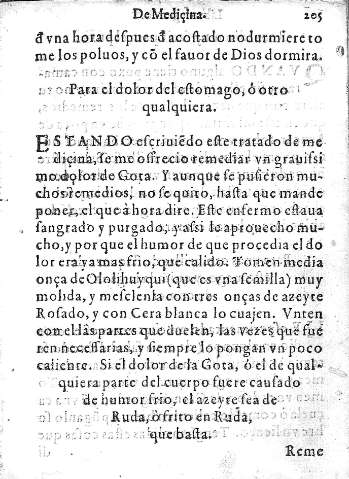 De Mediçina.	205
đ vna hora despues đ acostado no durmiere to
me los poluos, y cõ el fauor de Dios dormira.
Para el dolor del estomago, ó otro
qualquiera.
ESTANDO escriuiẽdo este tratado de me
diçina, se me ofrecio remediar vn grauissi
mo dolor de Gota. Y aunque se pusieron mu-
chos remedios, no se quito, hasta que mande
poner, el que ahora dire. Este enfermo estaua
sangrado y purgado, y assi le aprouecho mu-
cho, y por que el humor de que procedia el do
lor era ya mas frio, que calido. Tomen media
onça de Ololihuyqui (que es vna semilla) muy
molida, y mesclenla con tres onças de azeyte
Rosado, y con Cera blanca lo cuajen. Vnten
con el las partes que duelen, las vezes que fue
ren necessarias, y siempre lo pongan vn poco
caliente. Si el dolor de la Gota, ó el de qual-
quiera parte del cuerpo fuere causado
de humor frio, el azeyte sea de
Ruda, ó frito en Ruda,
que basta.
Reme